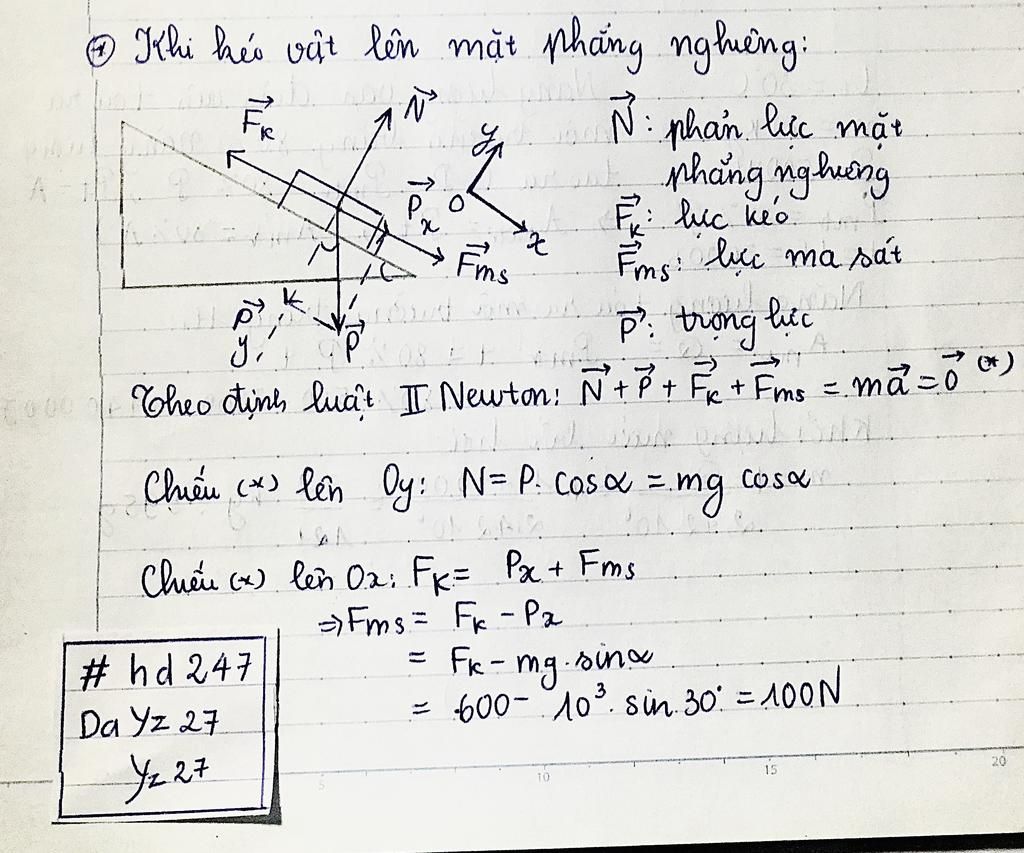 ⊛ Khi kéo vật lên mặt phẳng nghiêng:
F⃗k
N⃗
y
P⃗x
O
x
F⃗ms
P⃗
y
P⃗
N⃗: phản lực mặt
phẳng nghiêng
F⃗k: lực kéo
F⃗ms: lực ma sát
P⃗: trọng lực
Theo định luật II Newton: N⃗ + P⃗ + F⃗k + F⃗ms = ma⃗ = 0⃗ (*)
Chiếu (*) lên Oy: N = P. cosα = mg cosα
Chiếu (*) lên Ox: Fk = Px + Fms
⇒ Fms = Fk - Px
= Fk - mg.sinα
= 600 - 10³. sin 30° = 100N
# hd 247
Da Yz 27
Yz 27
5
10
15
20